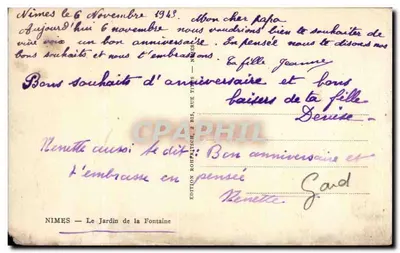 Nimes le 6 Novembre 1943. Mon cher papa
Aujourd'hui 6 novembre nous voudrions bien te souhaiter de
vive voix un bon anniversaire. En pensée nous te disons nos
bons souhaits et nous t'embrassons. Ta fille Jeanne
Bons souhaits d'anniversaire et bons
baisers de ta fille
Denise
Nenette aussi te dit : Bon anniversaire et
t'embrasse en pensée
Nenette
Gard
CPAPHIL
NIMES — Le Jardin de la Fontaine